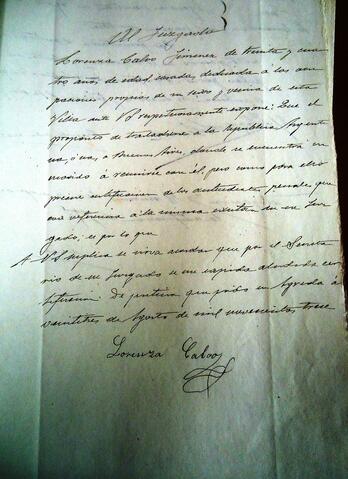 Al Juzgado
Lorenza Calvo Jimenez de treinta y cua-
tro años de edad, casada, dedicada á las ocu-
paciones propias de su sexo y vecina de esta
Villa ante Vd respetuosamente expone: Que el
propósito de trasladarse á la República Argenti-
na, ó sea, á Buenos Aires, donde se encuentra su
marido á reunirse con él, pero como para ello
precise certificacion de los antecedentes penales que
con referencia á la misma existan en ese Juz-
gado; es por lo que
A Vd suplica se sirva acordar que por el Secreta-
rio de su Juzgado se me expida aludida cer-
tificacion. Es justicia que pido en Agreda á
veintitres de Agosto de mil novecientos trece
Lorenza Calvo